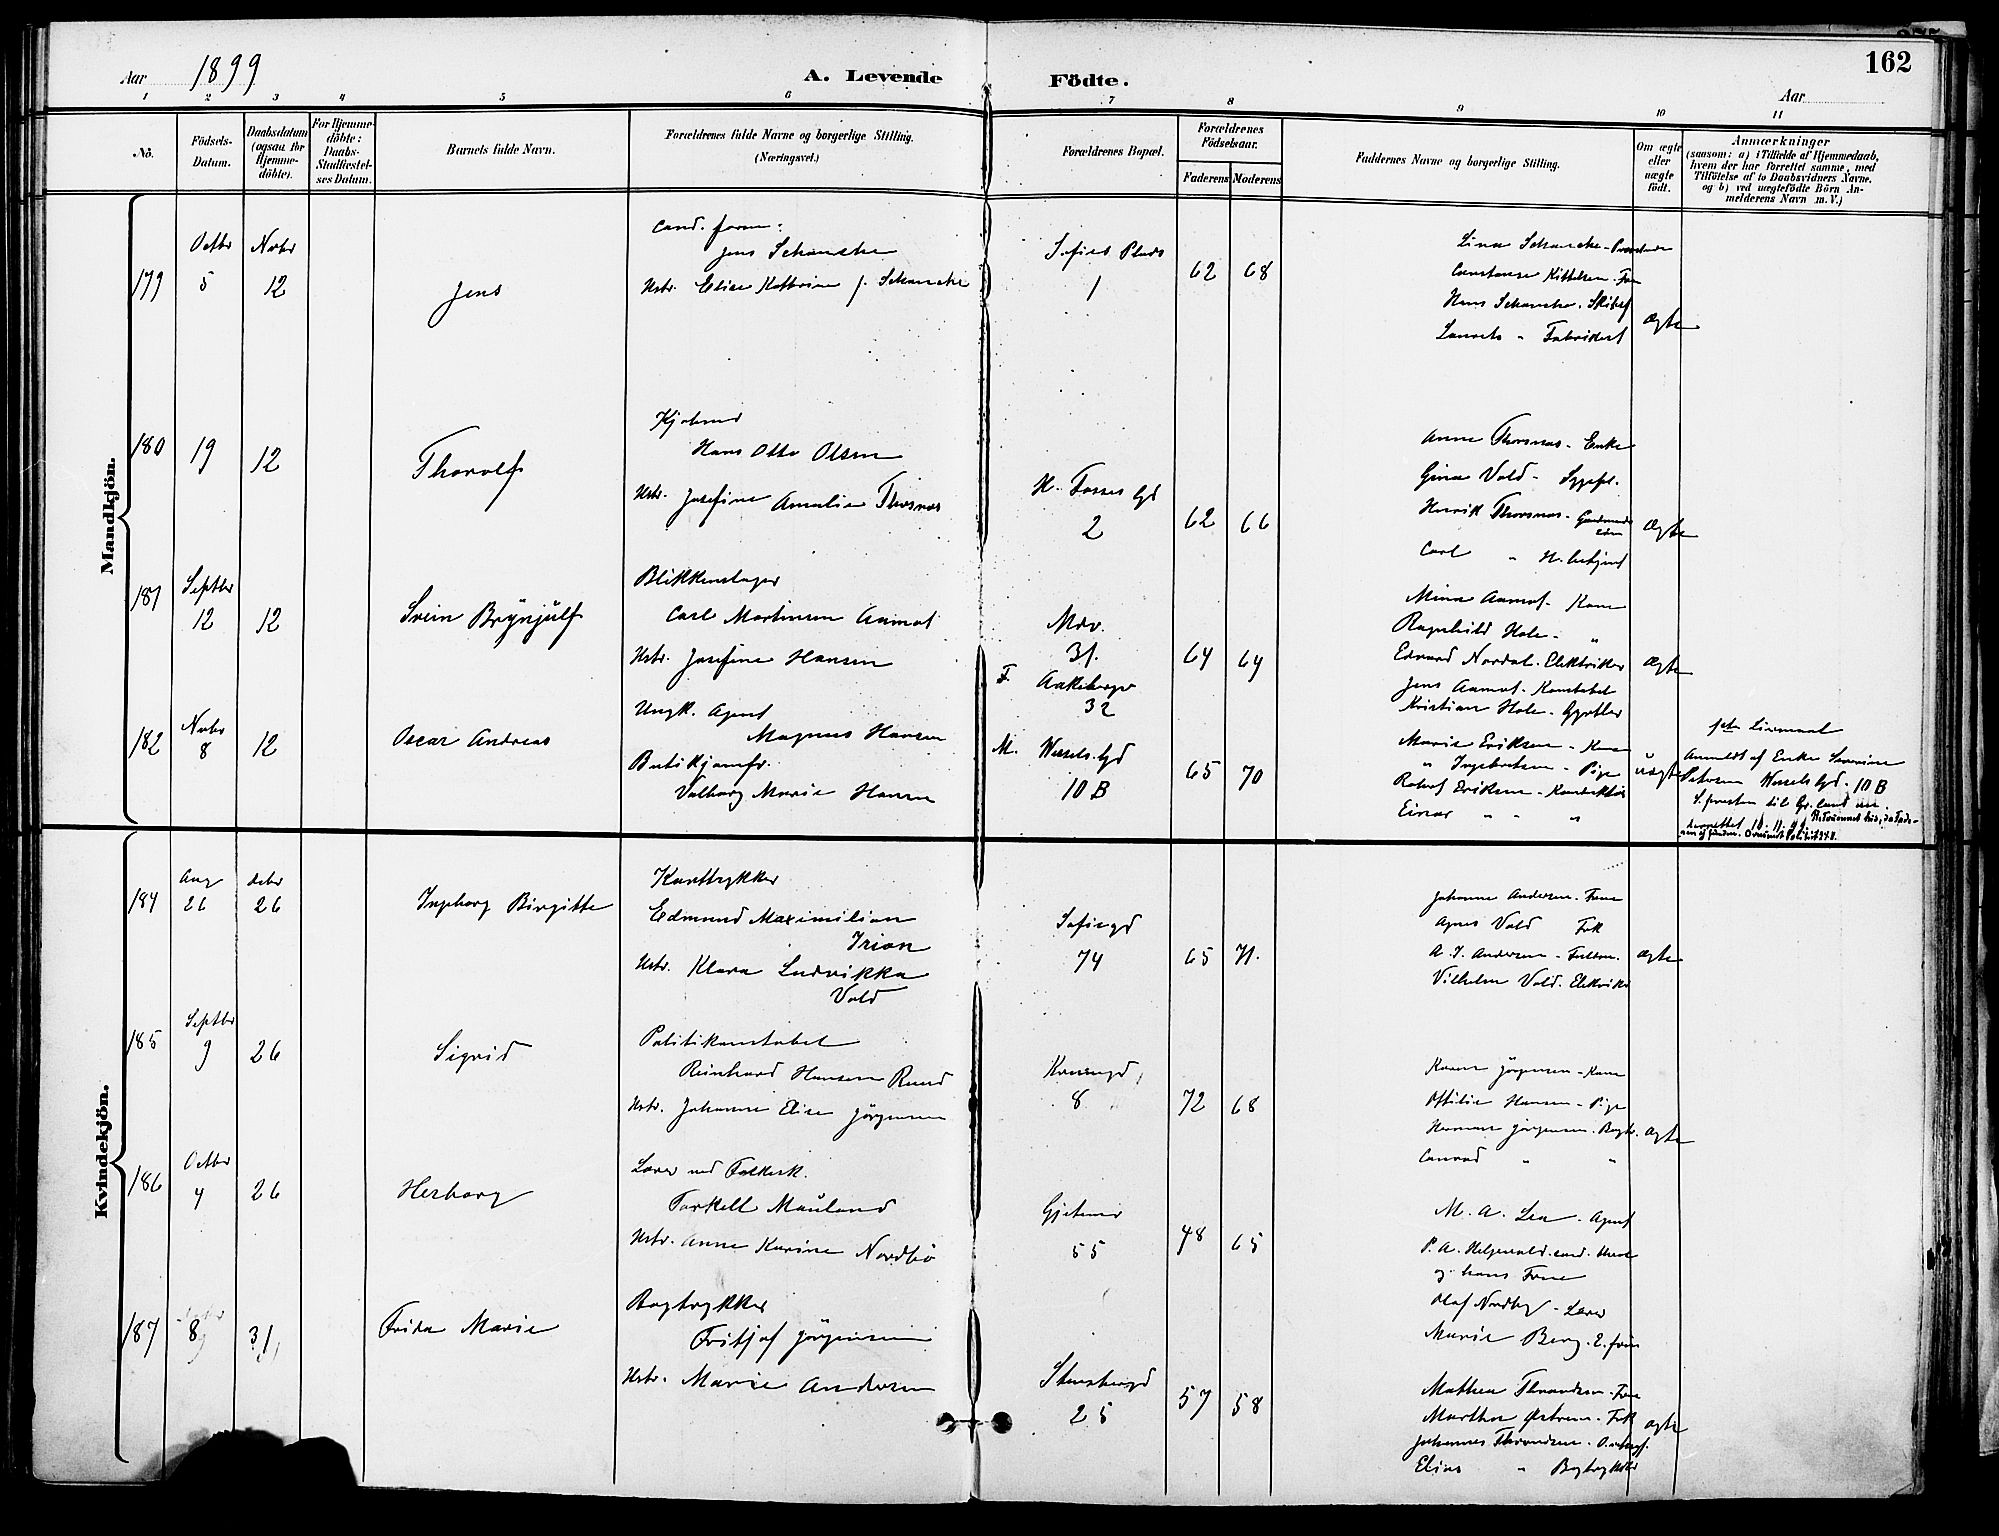 Aar 1899
A. Levende Födte.
162
Aar
1 2 3 4 5 6 7 8 9 10 11
No.
Födsels-Datum.
Daabsdatum (ogsaa for Hjemme-döbte).
For Hjemme-döbte: Daabs-Stadfæstel-ses Datum.
Barnets fulde Navn.
Forældrenes fulde Navne og borgerlige Stilling. (Næringsvei.)
Forældrenes Bopæl.
Forældrenes Födselsaar.
Faderens Moderens
Faddernes Navne og borgerlige Stilling.
Om ægte eller uægte födt.
Anmærkninger (saasom: a) i Tilfælde af Hjemmedaab, hvem der har forrettet samme, med Tilföielse af to Daabsvidners Navne, og b) ved uægtefödte Börn An-melderens Navn m. V.)
Mandkjön.
179
Octbr 5
Novbr 12
Jens
cand. farm:
Jens Schanche
Hstr. Elise Kathrine f. Schanche
Sofies Plads
1
62 68
Lina Schanche
Constanse Kittelsen - Frue
Hans Schanche. Skibsf
Laurets " Fabrikest
Ægte
180
19
12
Thorolf
Kjøbmd
Hans Otto Olsen
Hstr. Josefine Amalie Thorsnas
H. Fosses Gd
2
62 66
Anne Thorsnas - Enke
Gina Vold - Sypige.
Henrik Thorsnas -
Carl " H. betjent
Ægte
181
Septbr 12
12
Svein Brynjulf
Blikkenslager
Carl Martinsen Aamot
Hstr. Josefine Hansen
Mdv.
31.
64 64
Mina Aamot - Kone
Ragnhild Hole - "
Edvard Nordal. Elektriker
Jens Aamot - Konstabel
Kristian Hole - Gjørtler
Ægte
182
Novbr 8
12
Oscar Andreas
Ungk. Agent
Magnus Hansen
Butikjomfr.
Valborg Marie Hansen
F. Aakebergv
32
M. Wessels Gd
10 B
65 70
Marie Eriksen - Kone
" Ingebretsen - Pige
Robert Eriksen - Konduktør
Einar " "
uægte
Anmeldt af Enke Severine
Petersen Wessels Gd. 10 B
Kvindekjön.
184
Aug 26
Debr 26
Ingeborg Birgitte
Karttrykker
Edmund Maximilian
Irion
Hstr. Klara Ludvikka
Vold
Sofiesgd
74
65 71.
Johanne Andersen - Frue
Agnes Vold Frk
A. J. Andersen - Fuldm.
Vilhelm Vold. Elektriker
Ægte
185
Septbr 9
26
Sigrid
Politikonstabel
Reinhard Hansen Ruud
Hstr. Johanne Elise Jörgensen
8
72 68
Karen Jörgensen - Kone
Ottilie Hansen - Pige
Herman Jörgensen. Bagr.
Conrad " "
Ægte
186
Octbr 4
26
Herborg
Lærer ved Folkesk.
Torkell Mauland
Hstr. Anne Karine Nordbö
Gjetemv
55
48 65
M. A. Lea - Agent
P. A. Helgevold. cand. theol
og hans Frue
Olaf Nordbø - Lærer
Marie Berg.
187
8
31
Frida Marie
Bogtrykker
Fritjof Jörgensen
Hstr. Marie Andersen
Stensbergd
25
57 58
Mathea Thrandsen - Frue
Martha Østrem - Frk
Johannes Thrandsen.
Elias " Bogtrykker
Ægte